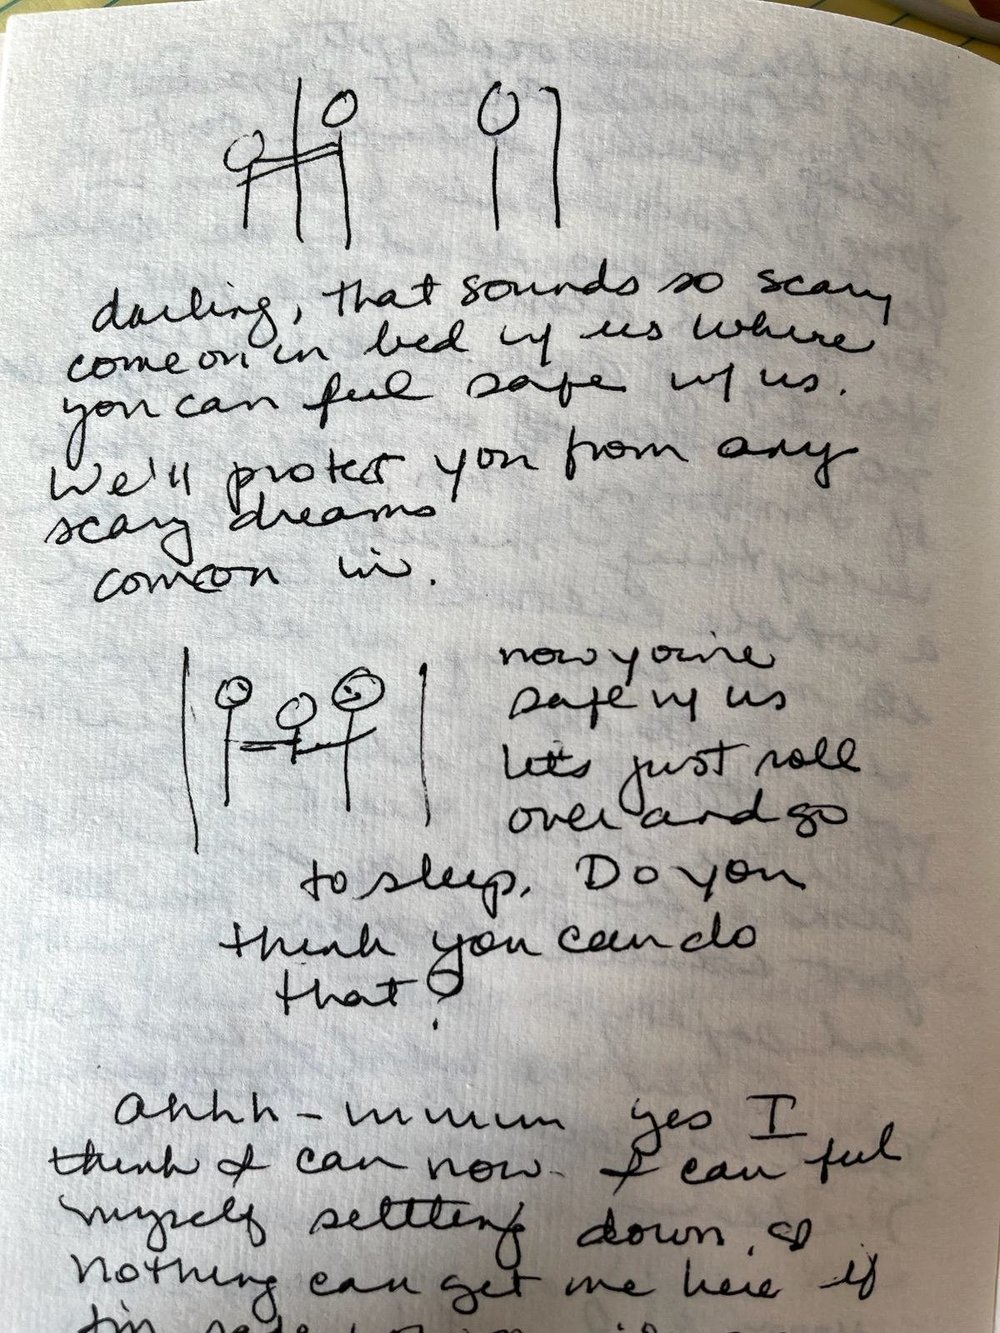 darling, that sounds so scary
come on in bed w/ us where
you can feel safe w/ us.
We'll protect you from any
scary dreams
come on in.
now you're
safe w/ us
let's just roll
over and go
to sleep. Do you
think you can do
that?
ahhh - mmmm yes I
think I can now. I can feel
myself settling down.
Nothing can get me here if
I'm safe